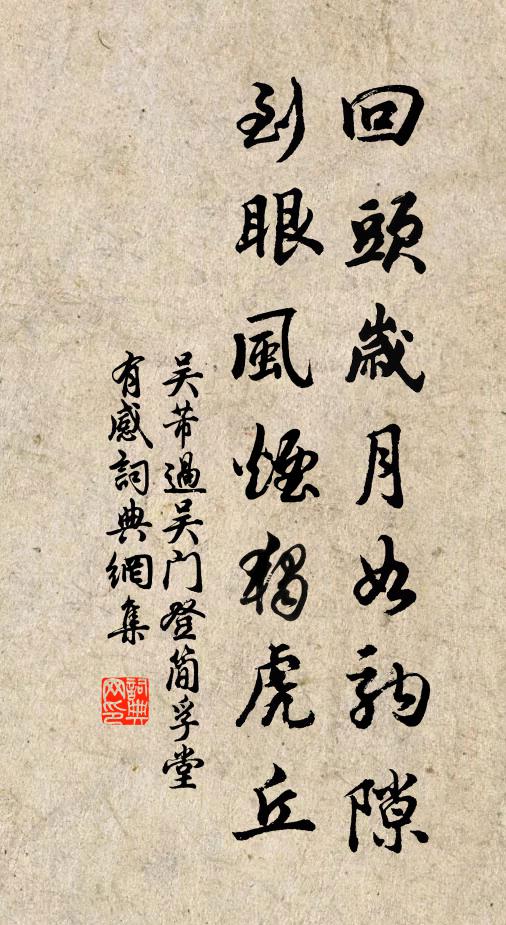 回頭歲月如駒隙
到眼風煙獨虎丘
吳芾過吳门登簡孚堂
有感詞典網集
詞典
网印